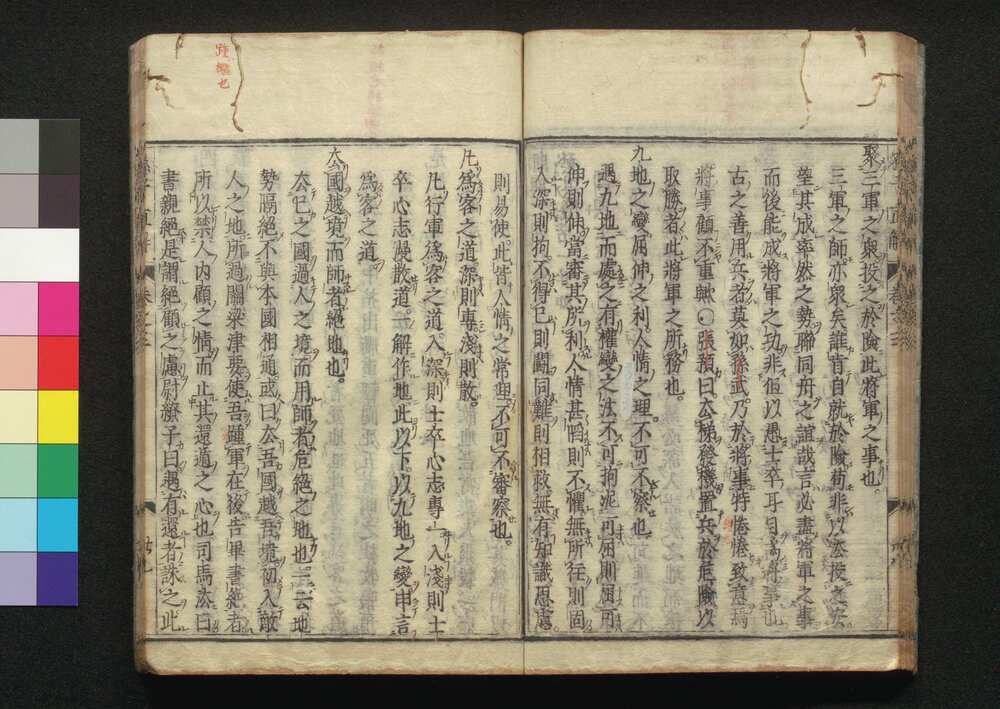 聚三軍之衆投之於險此將軍之事也
三軍之師亦衆矣誰肯自就於險苟非以法投之安
望其成率然之勢聯同舟之誼哉言必盡將軍之事
而後能成將軍之功非但以愚士卒耳目為將事也
古之善用兵者莫如孫武乃於將事特惓惓致意焉
將事顧不重歟○張預曰去梯發機置兵於危險以
取勝者此將軍之所務也
九地之變屈伸之利人情之理不可不察也
遇九地而處之有權變之法不可拘泥可屈則屈可
伸則伸當審其所利人情甚陷則不懼無所往則固
入深則拘不得已則鬬同難則相救無有知識思慮
則易使此皆人情之常理不可不審察也
凡為客之道深則專淺則散
凡行軍為客之道入深則士卒心志專一入淺則士
卒心志慢散道一解作地此以下以九地之變申言
為客之道
去國越境而師者絕地也
去己之國過人之境而用師者危絕之地也一云地
勢隔絕不與本國相通或曰去吾國越吾境初入敵
人之地所過關梁津要使吾踵軍在後告畢書絕者
所以禁人內顧之情而止其還遁之心也司馬法曰
書親絕是謂絕顧之慮尉繚子曰遇有還者誅之此
踵繼也